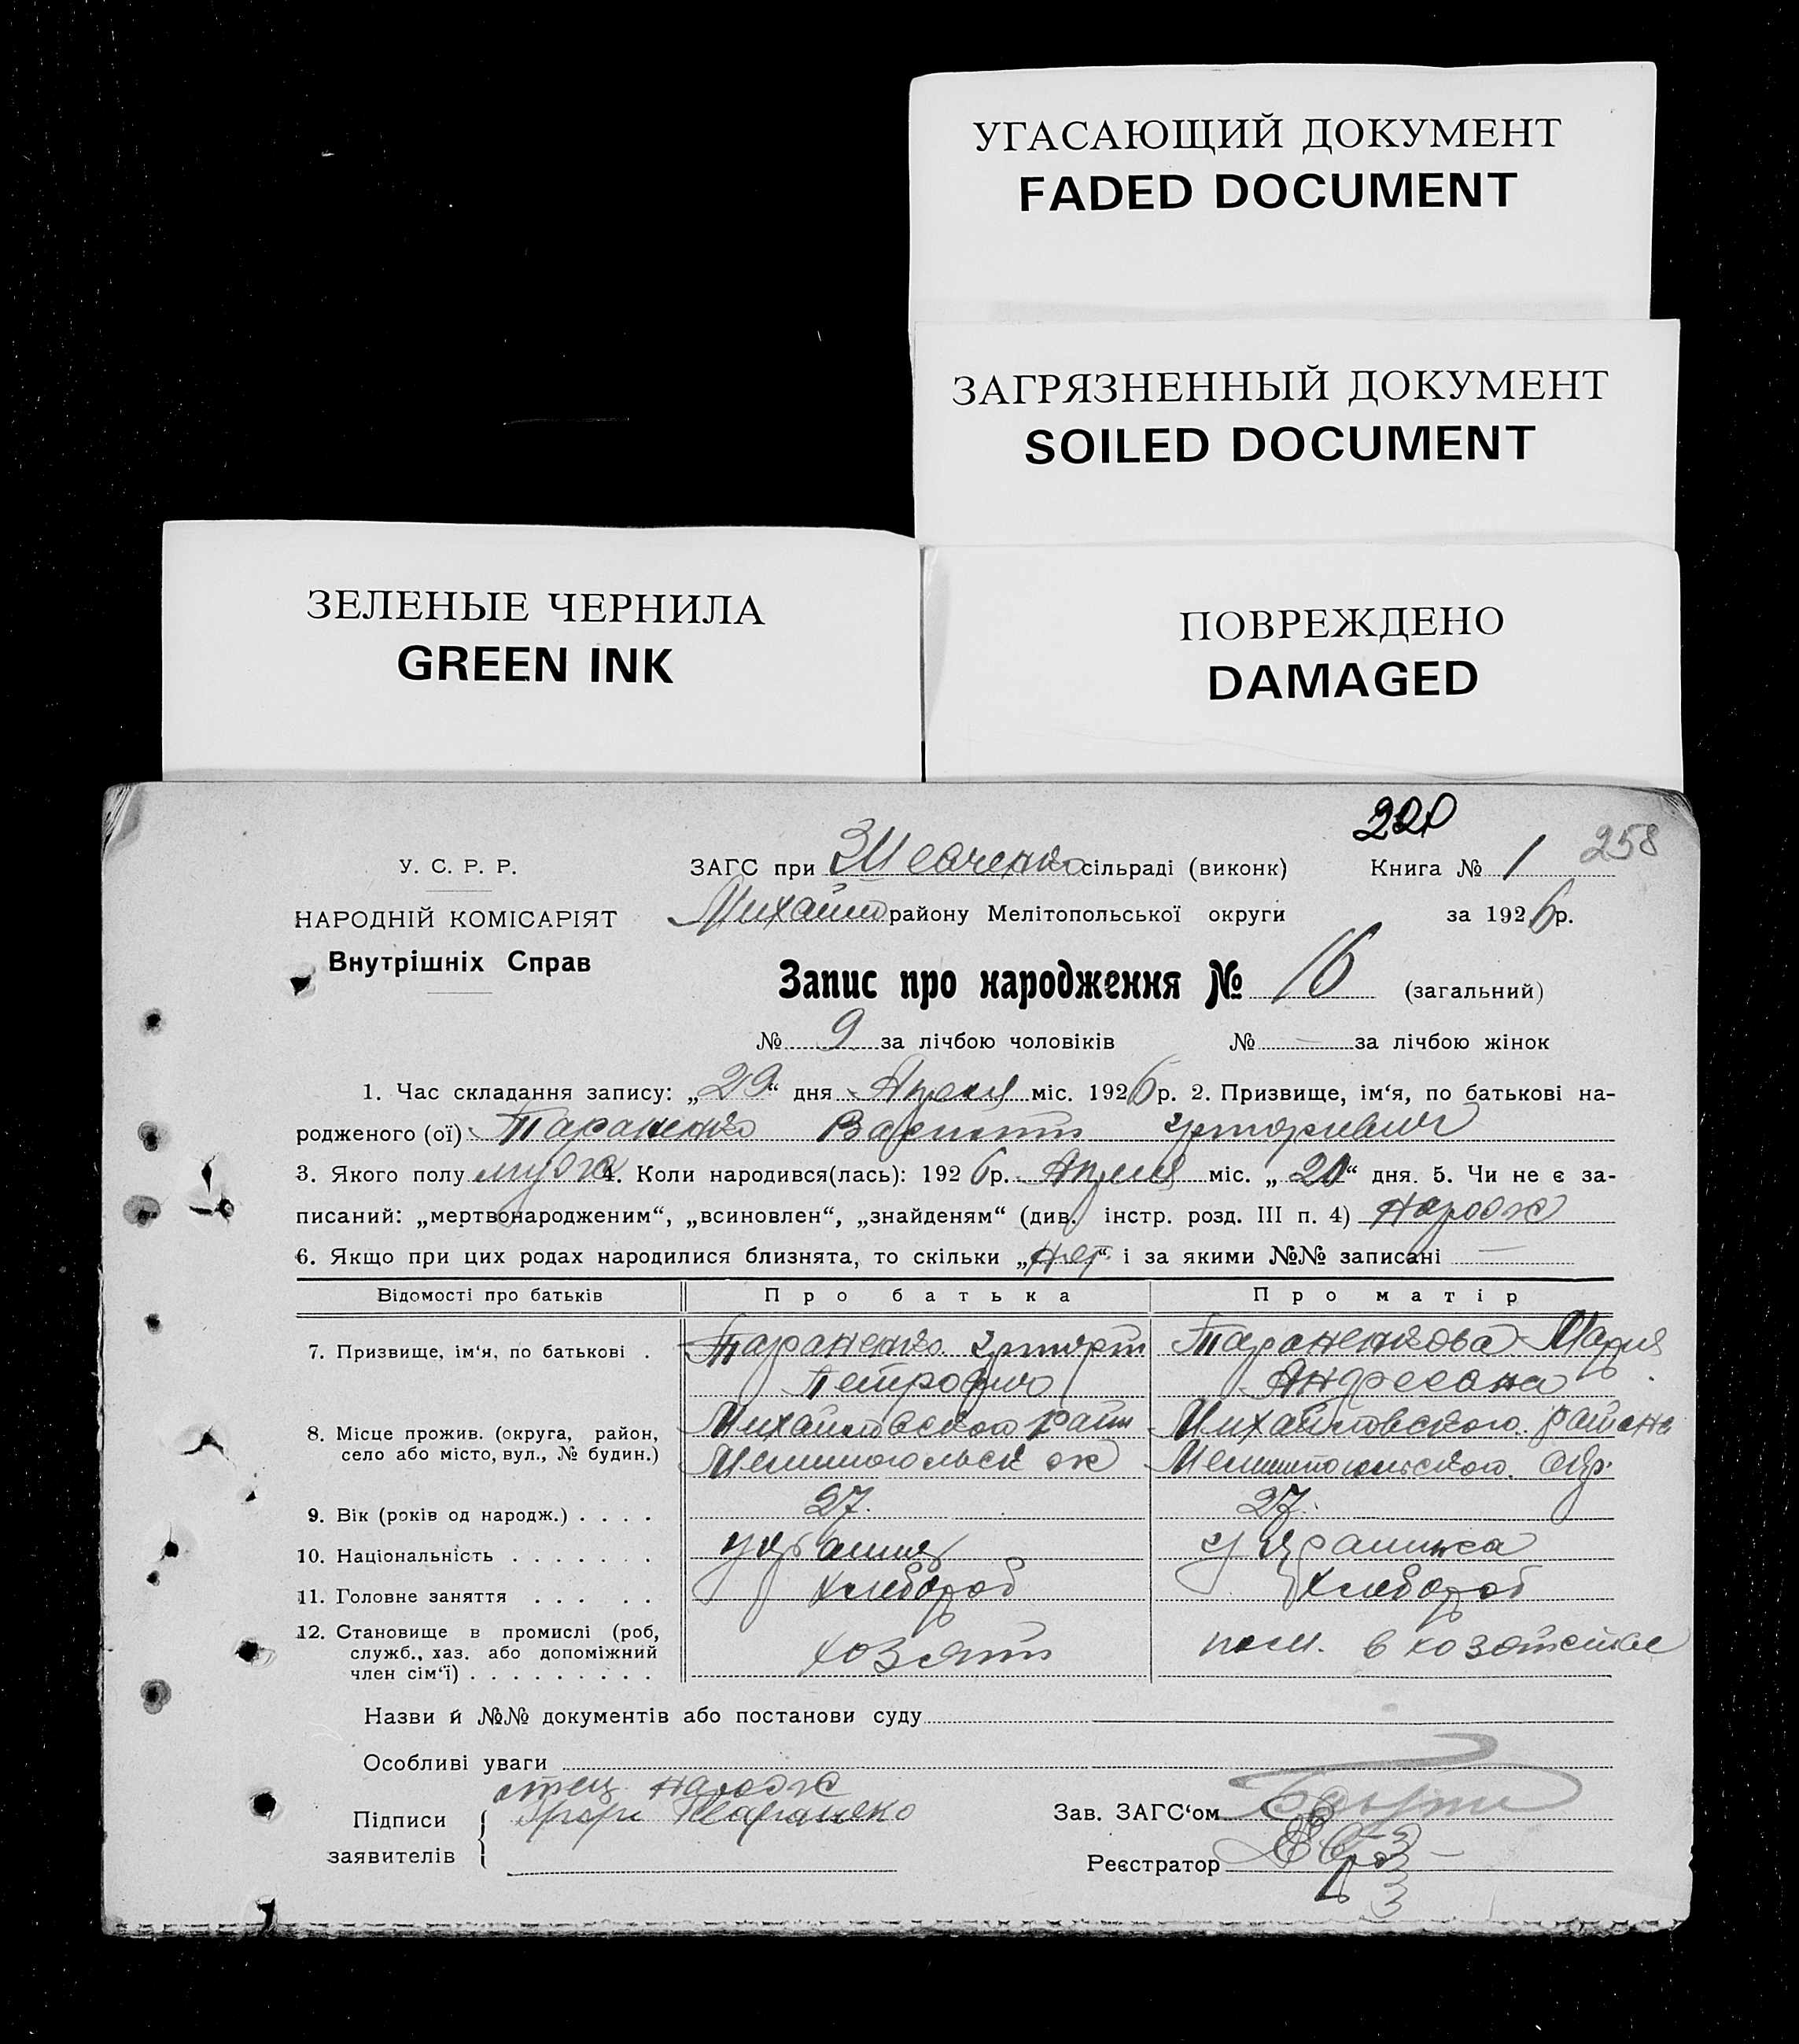 УГАСАЮЩИЙ ДОКУМЕНТ
FADED DOCUMENT
ЗАГРЯЗНЕННЫЙ ДОКУМЕНТ
SOILED DOCUMENT
ЗЕЛЕНЫЕ ЧЕРНИЛА
GREEN INK
ПОВРЕЖДЕНО
DAMAGED
220
258
У. С. Р. Р.
НАРОДНІЙ КОМІСАРІЯТ
Внутрішніх Справ
ЗАГС при Шевченко сільраді (виконк) Книга № 1
Михайл району Мелітопольської округи за 1926 р.
Запис про народження № 16 (загальний)
№ 9 за лічбою чоловіків № — за лічбою жінок
1. Час складання запису: „29“ дня Апреля міс. 1926 р. 2. Призвище, ім‘я, по батькові на-
родженого (ої) Тараненко
3. Якого полу мужс 4. Коли народився(лась): 1926 р. Апреля міс. „20“ дня. 5. Чи не є за-
писаний: „мертвонародженим“, „всиновлен“, „знайденям“ (див. інстр. розд. III п. 4) народж
6. Якщо при цих родах народилися близнята, то скільки „нет“ і за якими №№ записані —
Відомості про батьків Про батька Про матір
7. Призвище, ім‘я, по батькові . Тараненко Тараненкова Мария
Петрович Андреевна
8. Місце прожив. (округа, район, село або місто, вул., № будин.) Михайловского район Михайловского района
Мелитопольск ок Мелитопольского окр.
9. Вік (років од народж.) . . . . 27. 27.
10. Національність . . . . . . . украинец украинка
11. Головне заняття . . . . . хлебороб хлебороб
12. Становище в промислі (роб, служб., хаз. або допоміжний член сім‘ї) . . . . . . . . . хозяин пом. в хозяйстве
Назви й №№ документів або постанови суду
Особливі уваги
отец народж
Підписи заявителів { Тараненко
Зав. ЗАГС‘ом
Реєстратор